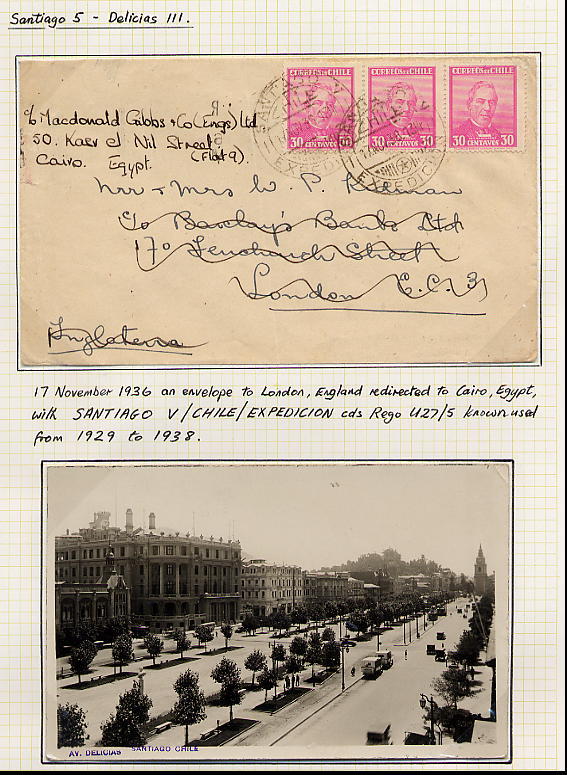 Santiago 5 - Delicias III.
CORREOS DE CHILE
CORREOS DE CHILE
CORREOS DE CHILE
30 CENTAVOS 30
30 CENTAVOS 30
30 CENTAVOS 30
SANTIAGO V
CHILE
EXPEDICION
c/o Macdonald Gibbs & Co (Engs) Ltd
50. Kasr el Nil Street
(Flat 9).
Cairo. Egypt.
Mr & Mrs W. P.
c/o Barclay's Banks Ltd
170 Fenchurch Street
London E.C.3
Inglaterra
17 November 1936 an envelope to London, England redirected to Cairo, Egypt,
with SANTIAGO V/CHILE/EXPEDICION cds Rego U27/5 known used
from 1929 to 1938.
AV. DELICIAS SANTIAGO CHILE